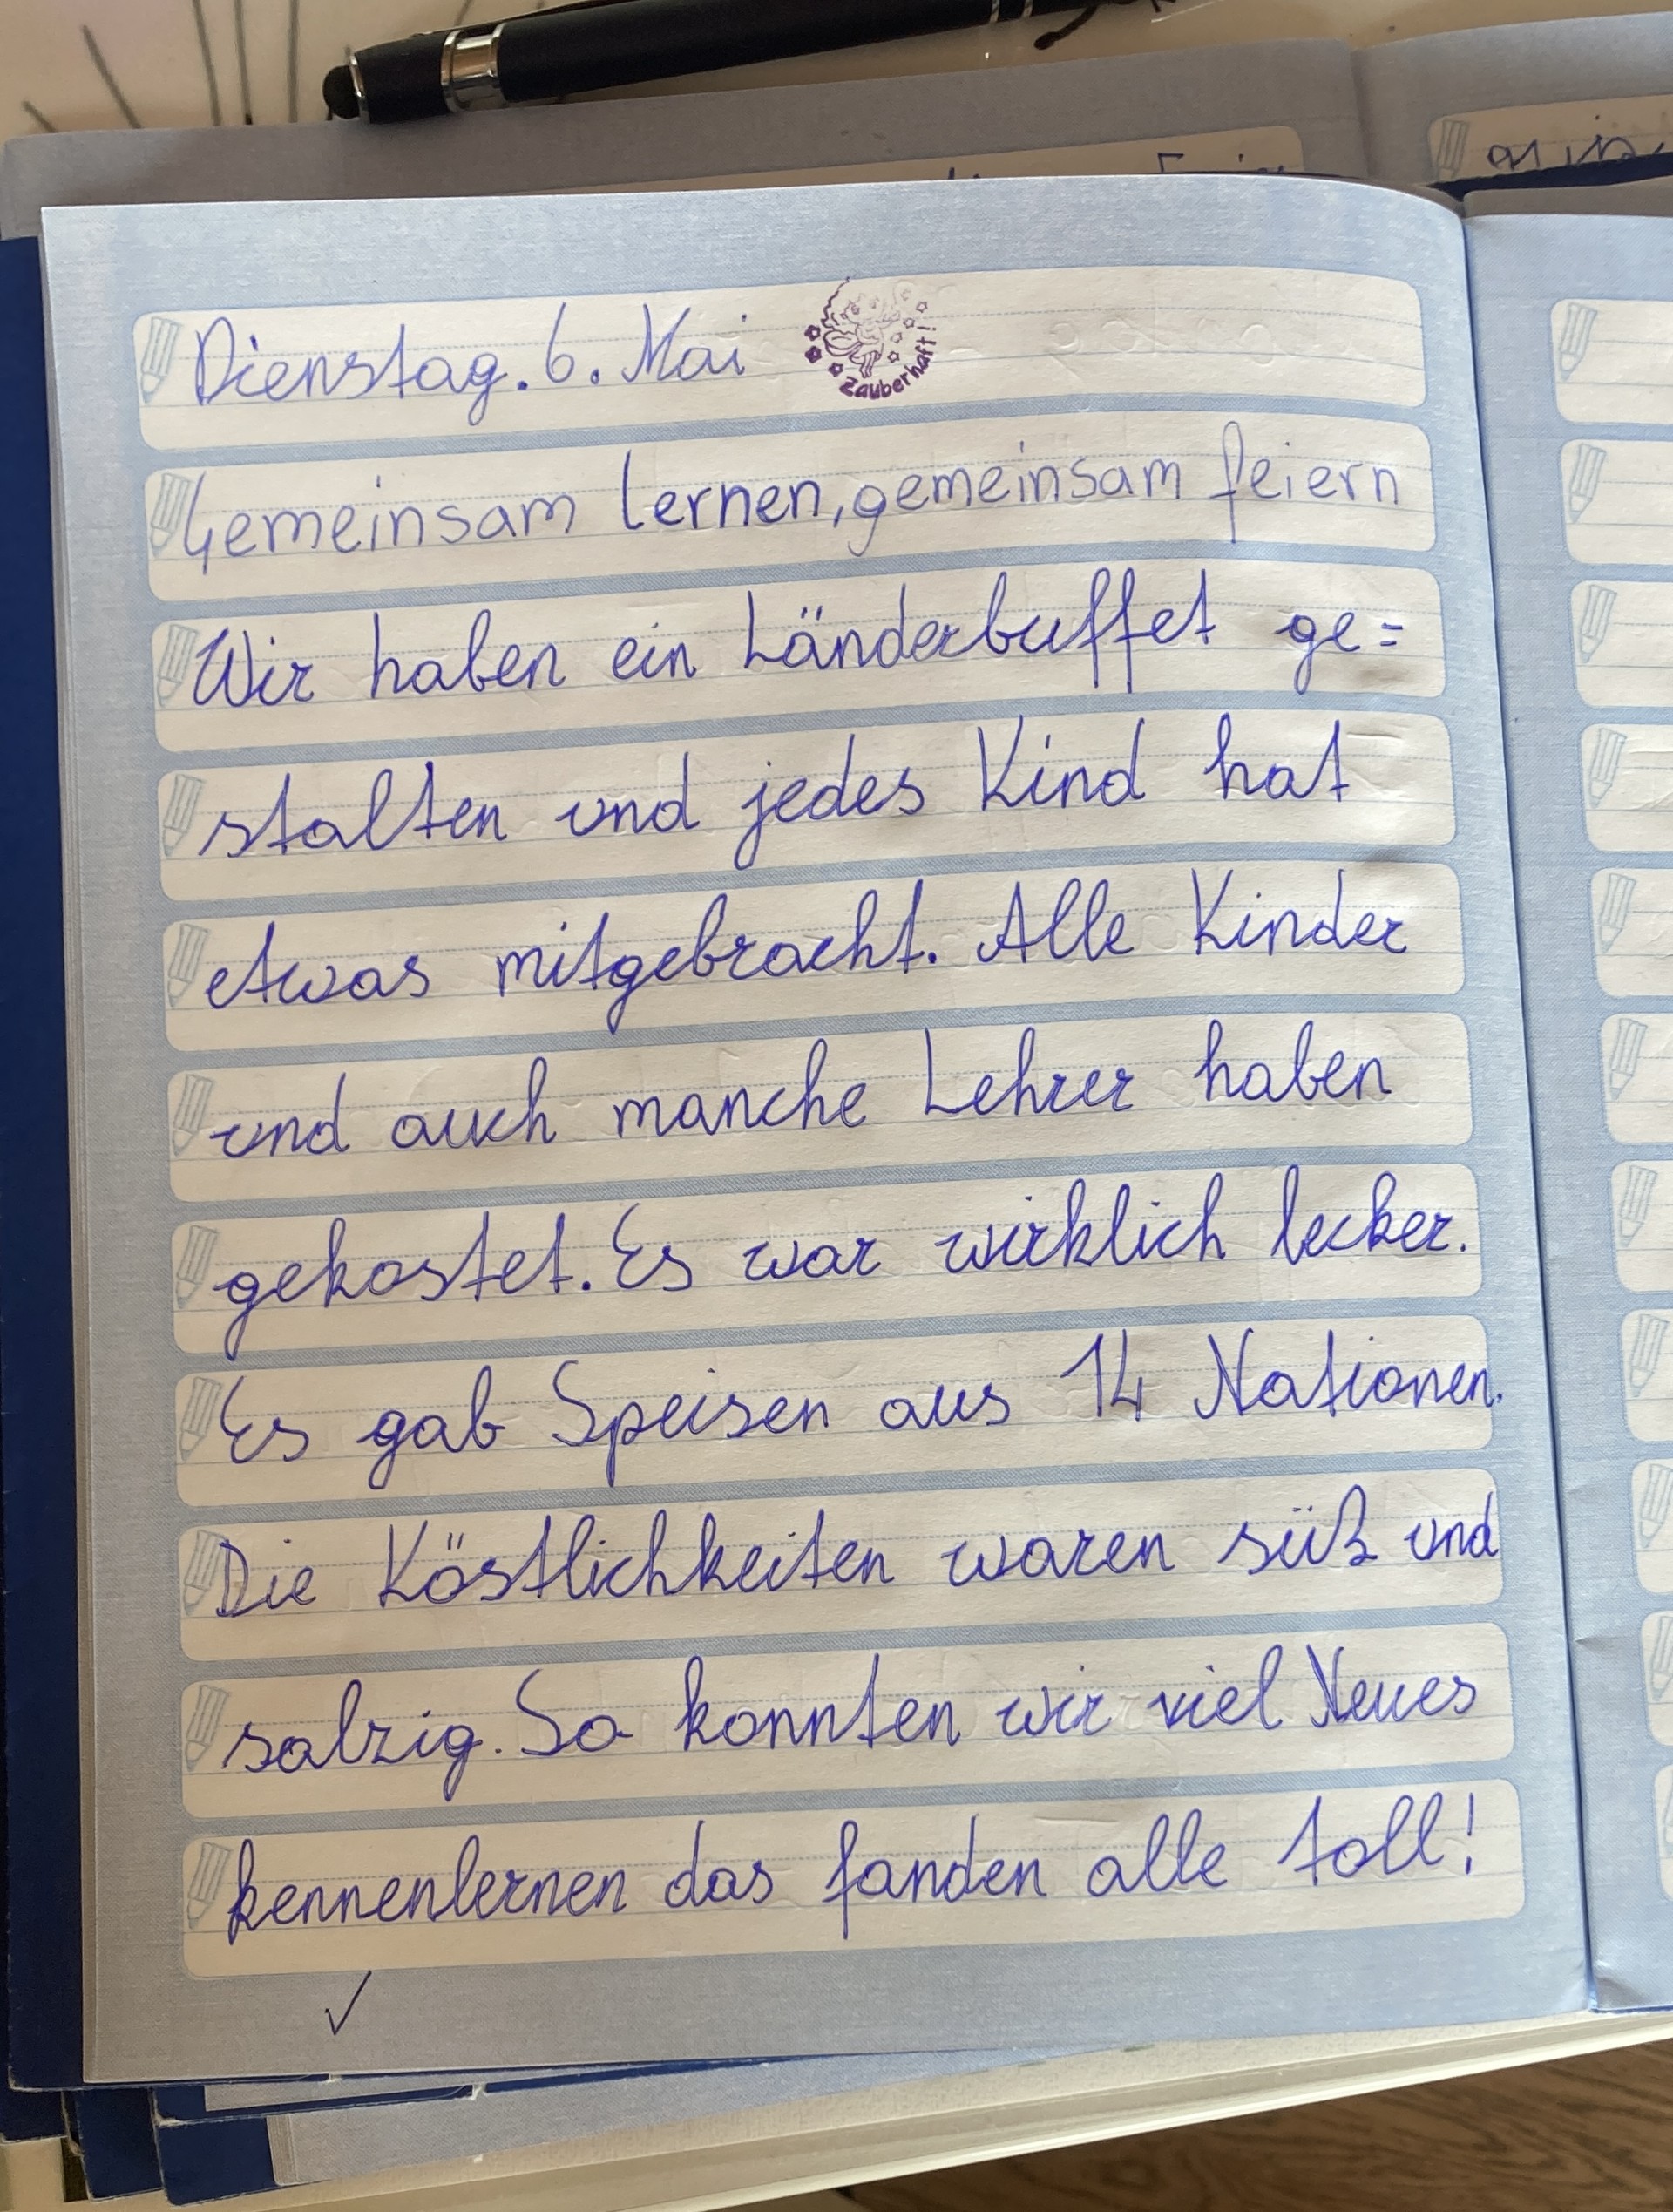 Dienstag. 6. Mai
Zauberhaft!
Gemeinsam lernen, gemeinsam feiern
Wir haben ein Länderbuffet ge=
stalten und jedes Kind hat
etwas mitgebracht. Alle Kinder
und auch manche Lehrer haben
gekostet. Es war wirklich lecker.
Es gab Speisen aus 14 Nationen.
Die Köstlichkeiten waren süß und
salzig. So konnten wir viel Neues
kennenlernen das fanden alle toll!